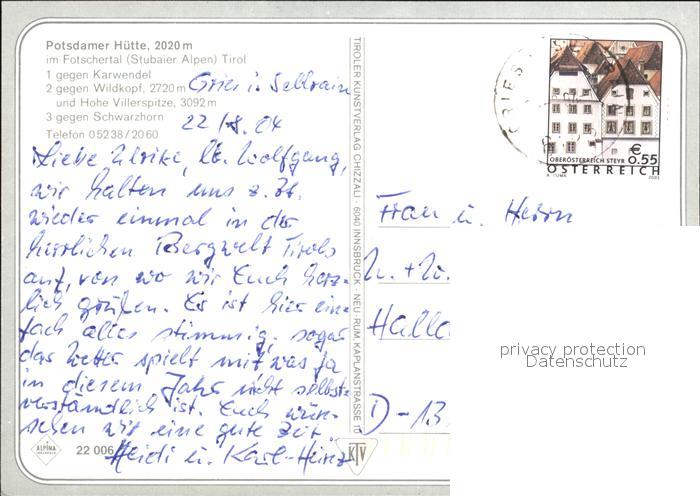 Potsdamer Hütte, 2020 m
im Fotschertal (Stubaier Alpen) Tirol
1 gegen Karwendel
2 gegen Wildkopf, 2720 m
und Hohe Villerspitze, 3092 m
3 gegen Schwarzhorn
Telefon 05238/2060
Gries i. Sellrain
22/8. 04
Liebe Ulrike, lb. Wolfgang,
wir halten uns z. Zt.
wieder einmal in der
herrlichen Bergwelt Tirols
auf, von wo wir Euch herz-
lich grüßen. Es ist hier ein-
fach alles stimmig, sogar
das Wetter spielt mit was ja
in diesem Jahr nicht selbst-
verständlich ist. Euch wün-
schen wir eine gute Zeit.
Heidi u. Karl-Heinz
ALPINA
22 006
TIROLER KUNSTVERLAG CHIZZALI · 6040 INNSBRUCK - NEU-RUM, KAPLANSTRASSE
KTV
GRIES
OBERÖSTERREICH STEYR
€
0.55
ÖSTERREICH
Frau u. Herrn
Halla
D-13
privacy protection
Datenschutz